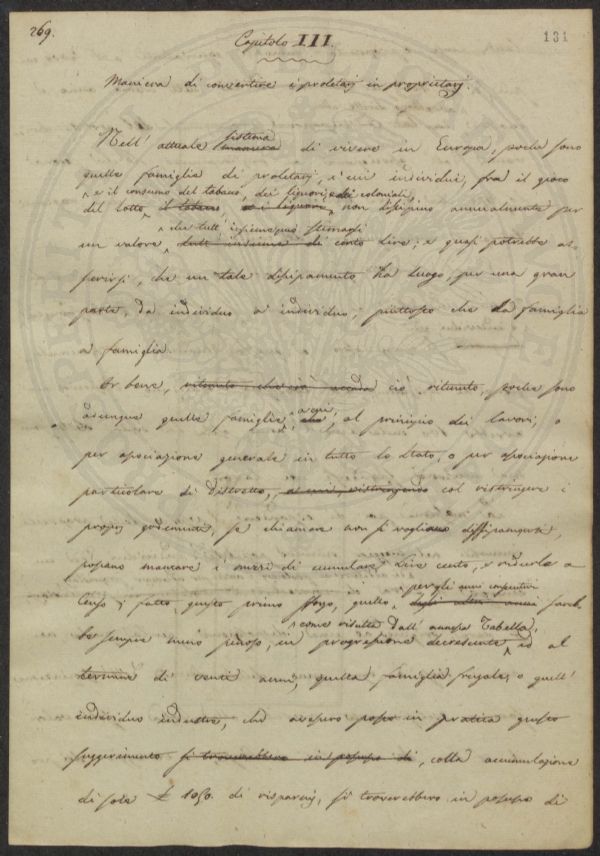 269.
131
Capitolo III.
Maniera di convertire i proletarj in proprietarj.
Nell' attuale sistema maniera di vivere in Europa, poche sono
quelle famiglie di proletarj, i cui individui, fra il gioco
e il consumo del tabacco, dei liquori, e dei coloniali,
del lotto il tabacco, e i liquori, non dissipino annualmente per
che tutt' insieme può stimarsi
un valore tutt' insieme di cento lire; e quasi potrebbe as-
serirsi, che un tale dissipamento ha luogo, per una gran
parte, da individuo a individuo, piuttosto che da famiglia
a famiglia.
Or bene, ritenuto che ciò accada ciò ritenuto, poche sono
adunque quelle famiglie, a cui, che, al principio dei lavori, o
per associazione generale in tutto lo Stato, o per associazione
particolare di Distretto, col ristringere i
proprj godimenti, se chiamare non si vogliano dissipamenti,
possano mancare i mezzi di cumulare Lire cento, e ridurle a
Censo; fatto questo primo sforzo, quello,
per gli anni consecutivi
degli altri anni sareb-
come risulta dall' annessa Tabella,
be sempre meno penoso, in progressione decrescente, ed al
termine di venti anni, quella famiglia frugale, o quell'
individuo industre, che avessero posto in pratica questo
suggerimento si troverebbero in possesso di, colla accumulazione
di sole £ 1050. di risparmj, si troverebbero in possesso di